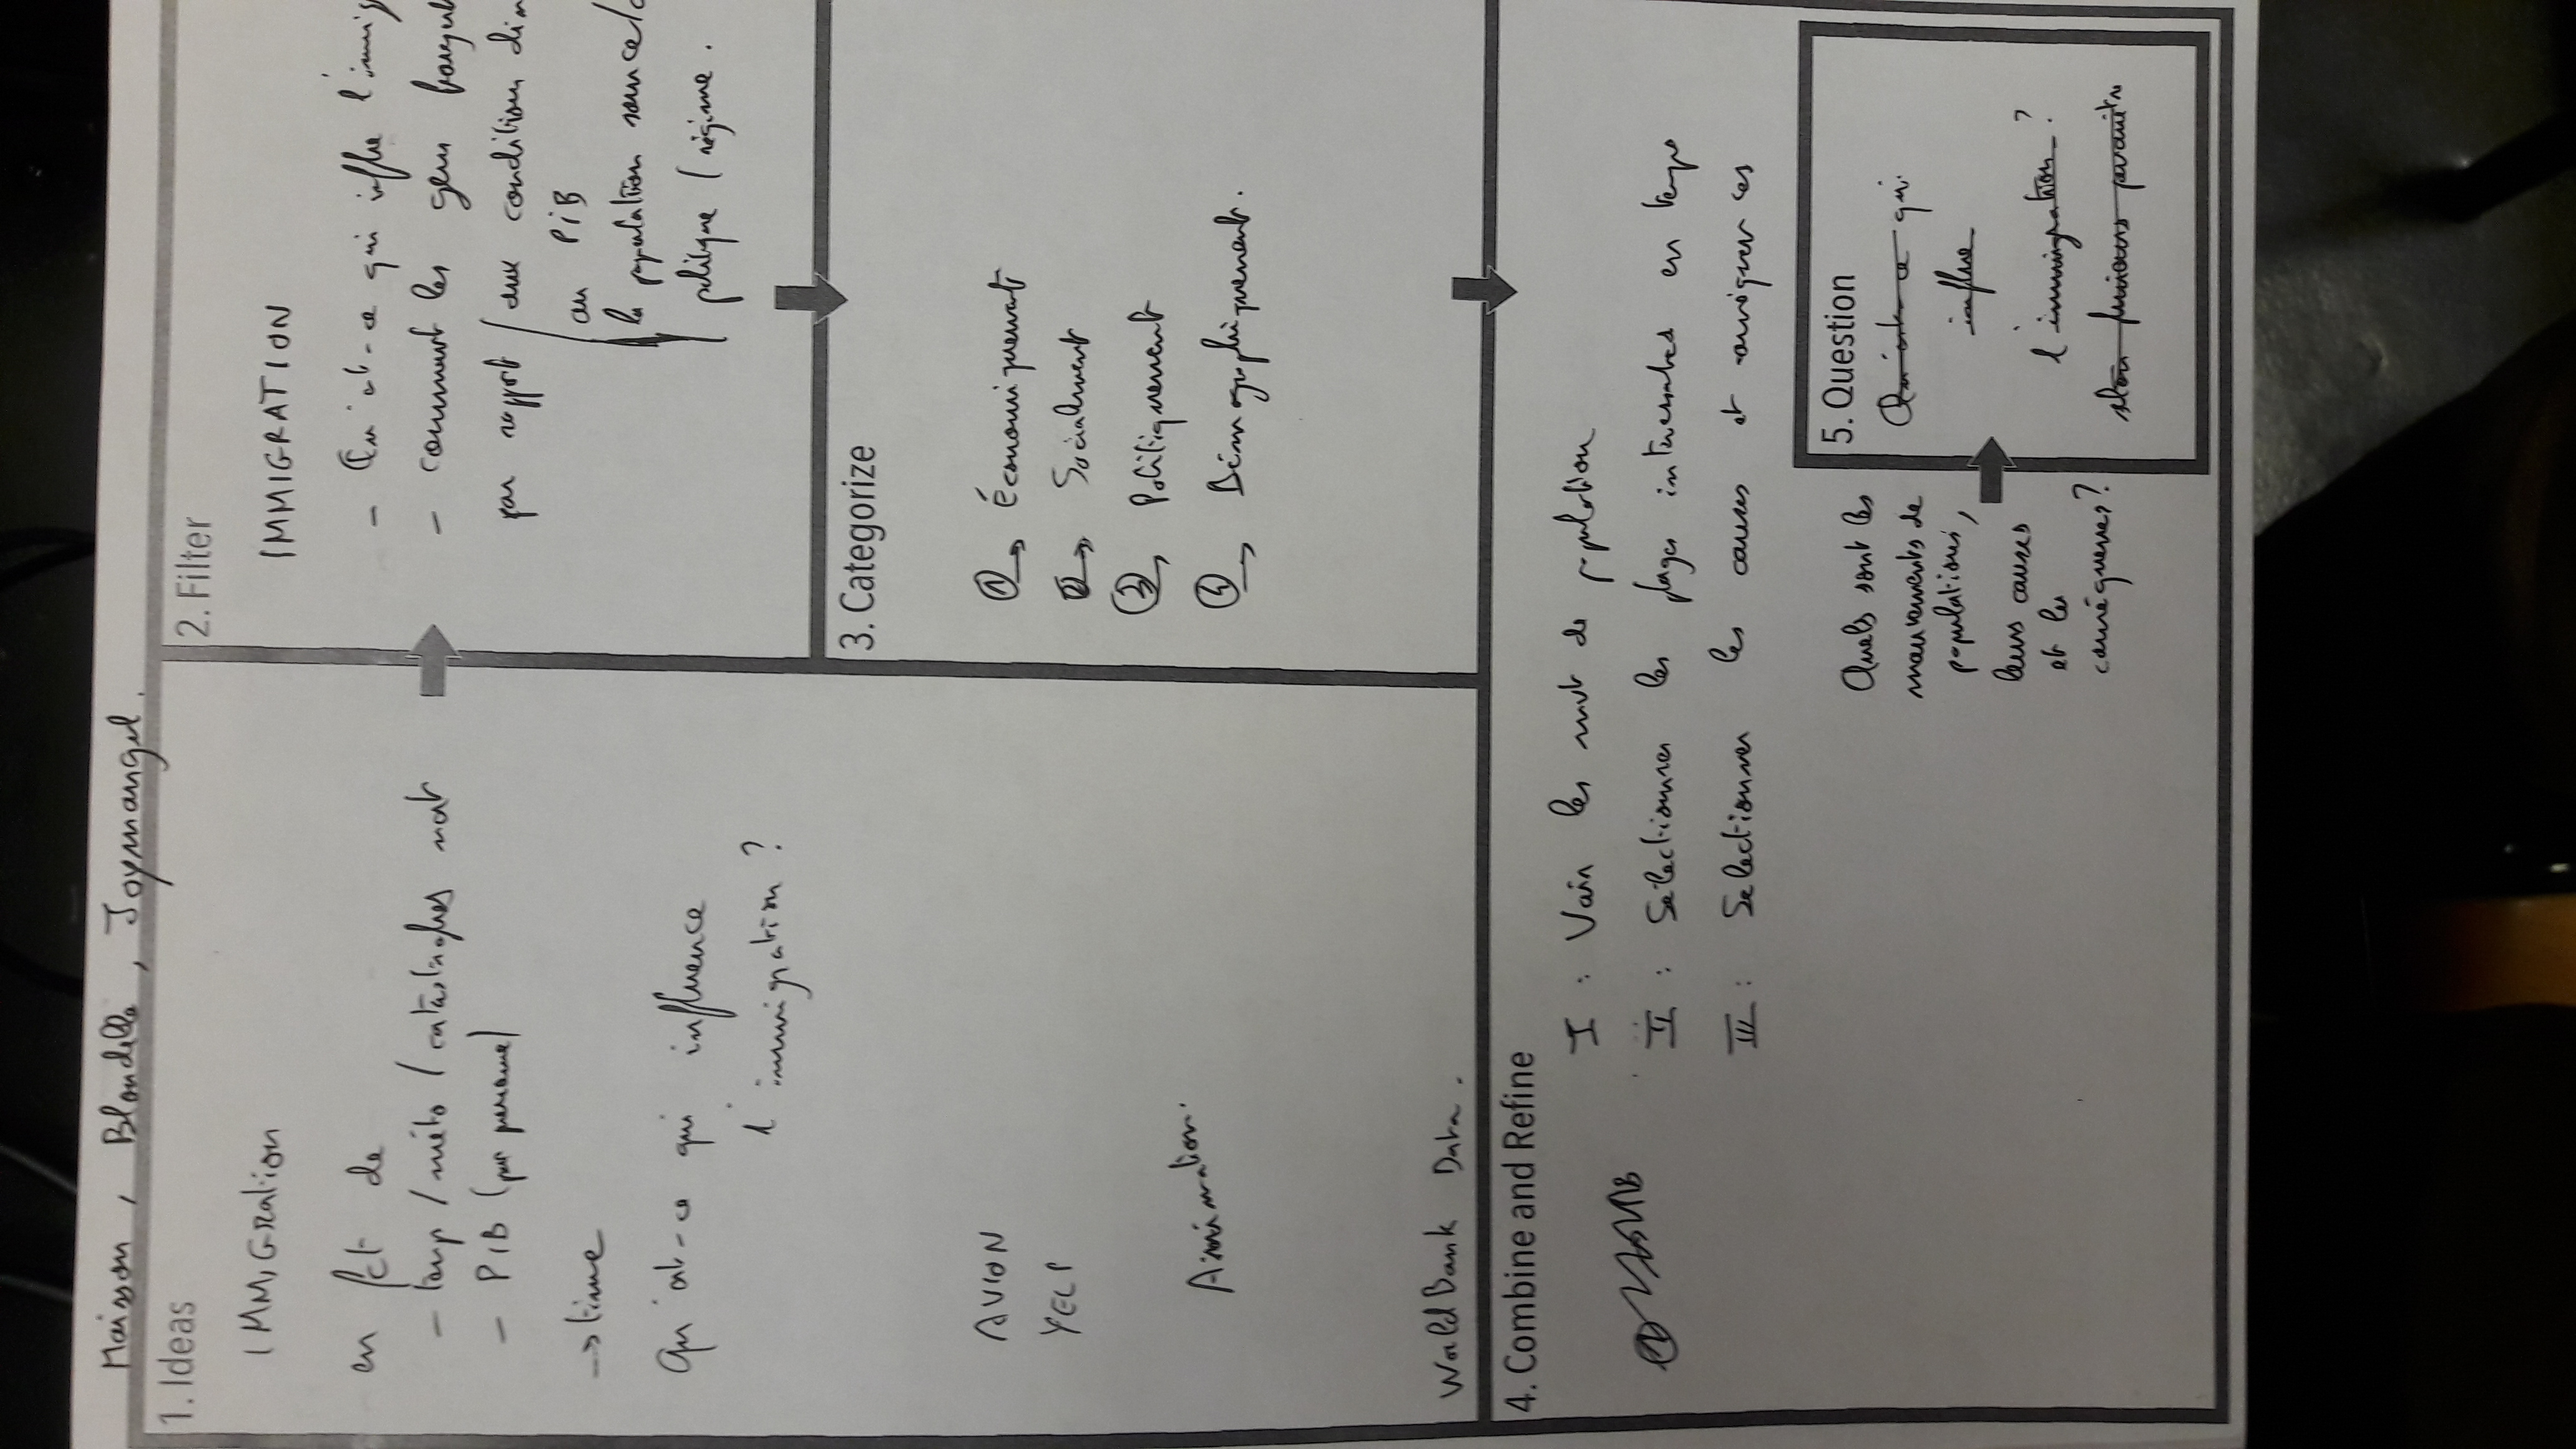 Maisson, Blondelle, Joymangul.
1. Ideas
IMMIGRation
en fct de
- temp / méto / catastrophes nat
- PIB (par personne)
-> time
Qu'est-ce qui influence
l'immigration ?
AVION
YELP
WorldBank Data.
2. Filter
IMMIGRATION
- Qu'est-ce qui influe l'immig
- comment les gens
par rapport / aux conditions clim
au PIB
la population source/
politique / régime.
3. Categorize
① → Économiquement
② → Socialement
③ → Politiquement
④ → Démographiquement.
4. Combine and Refine
I : Voir les mvt de population
II : Sélectionner les plages intéressantes en temps
III : Selectionner les causes et conséquences
Quels sont les
mouvements de
populations,
leurs causes
et les
conséquences?
5. Question
Qu'est-ce qui
influe
l'immigration ?
selon plusieurs paramètre